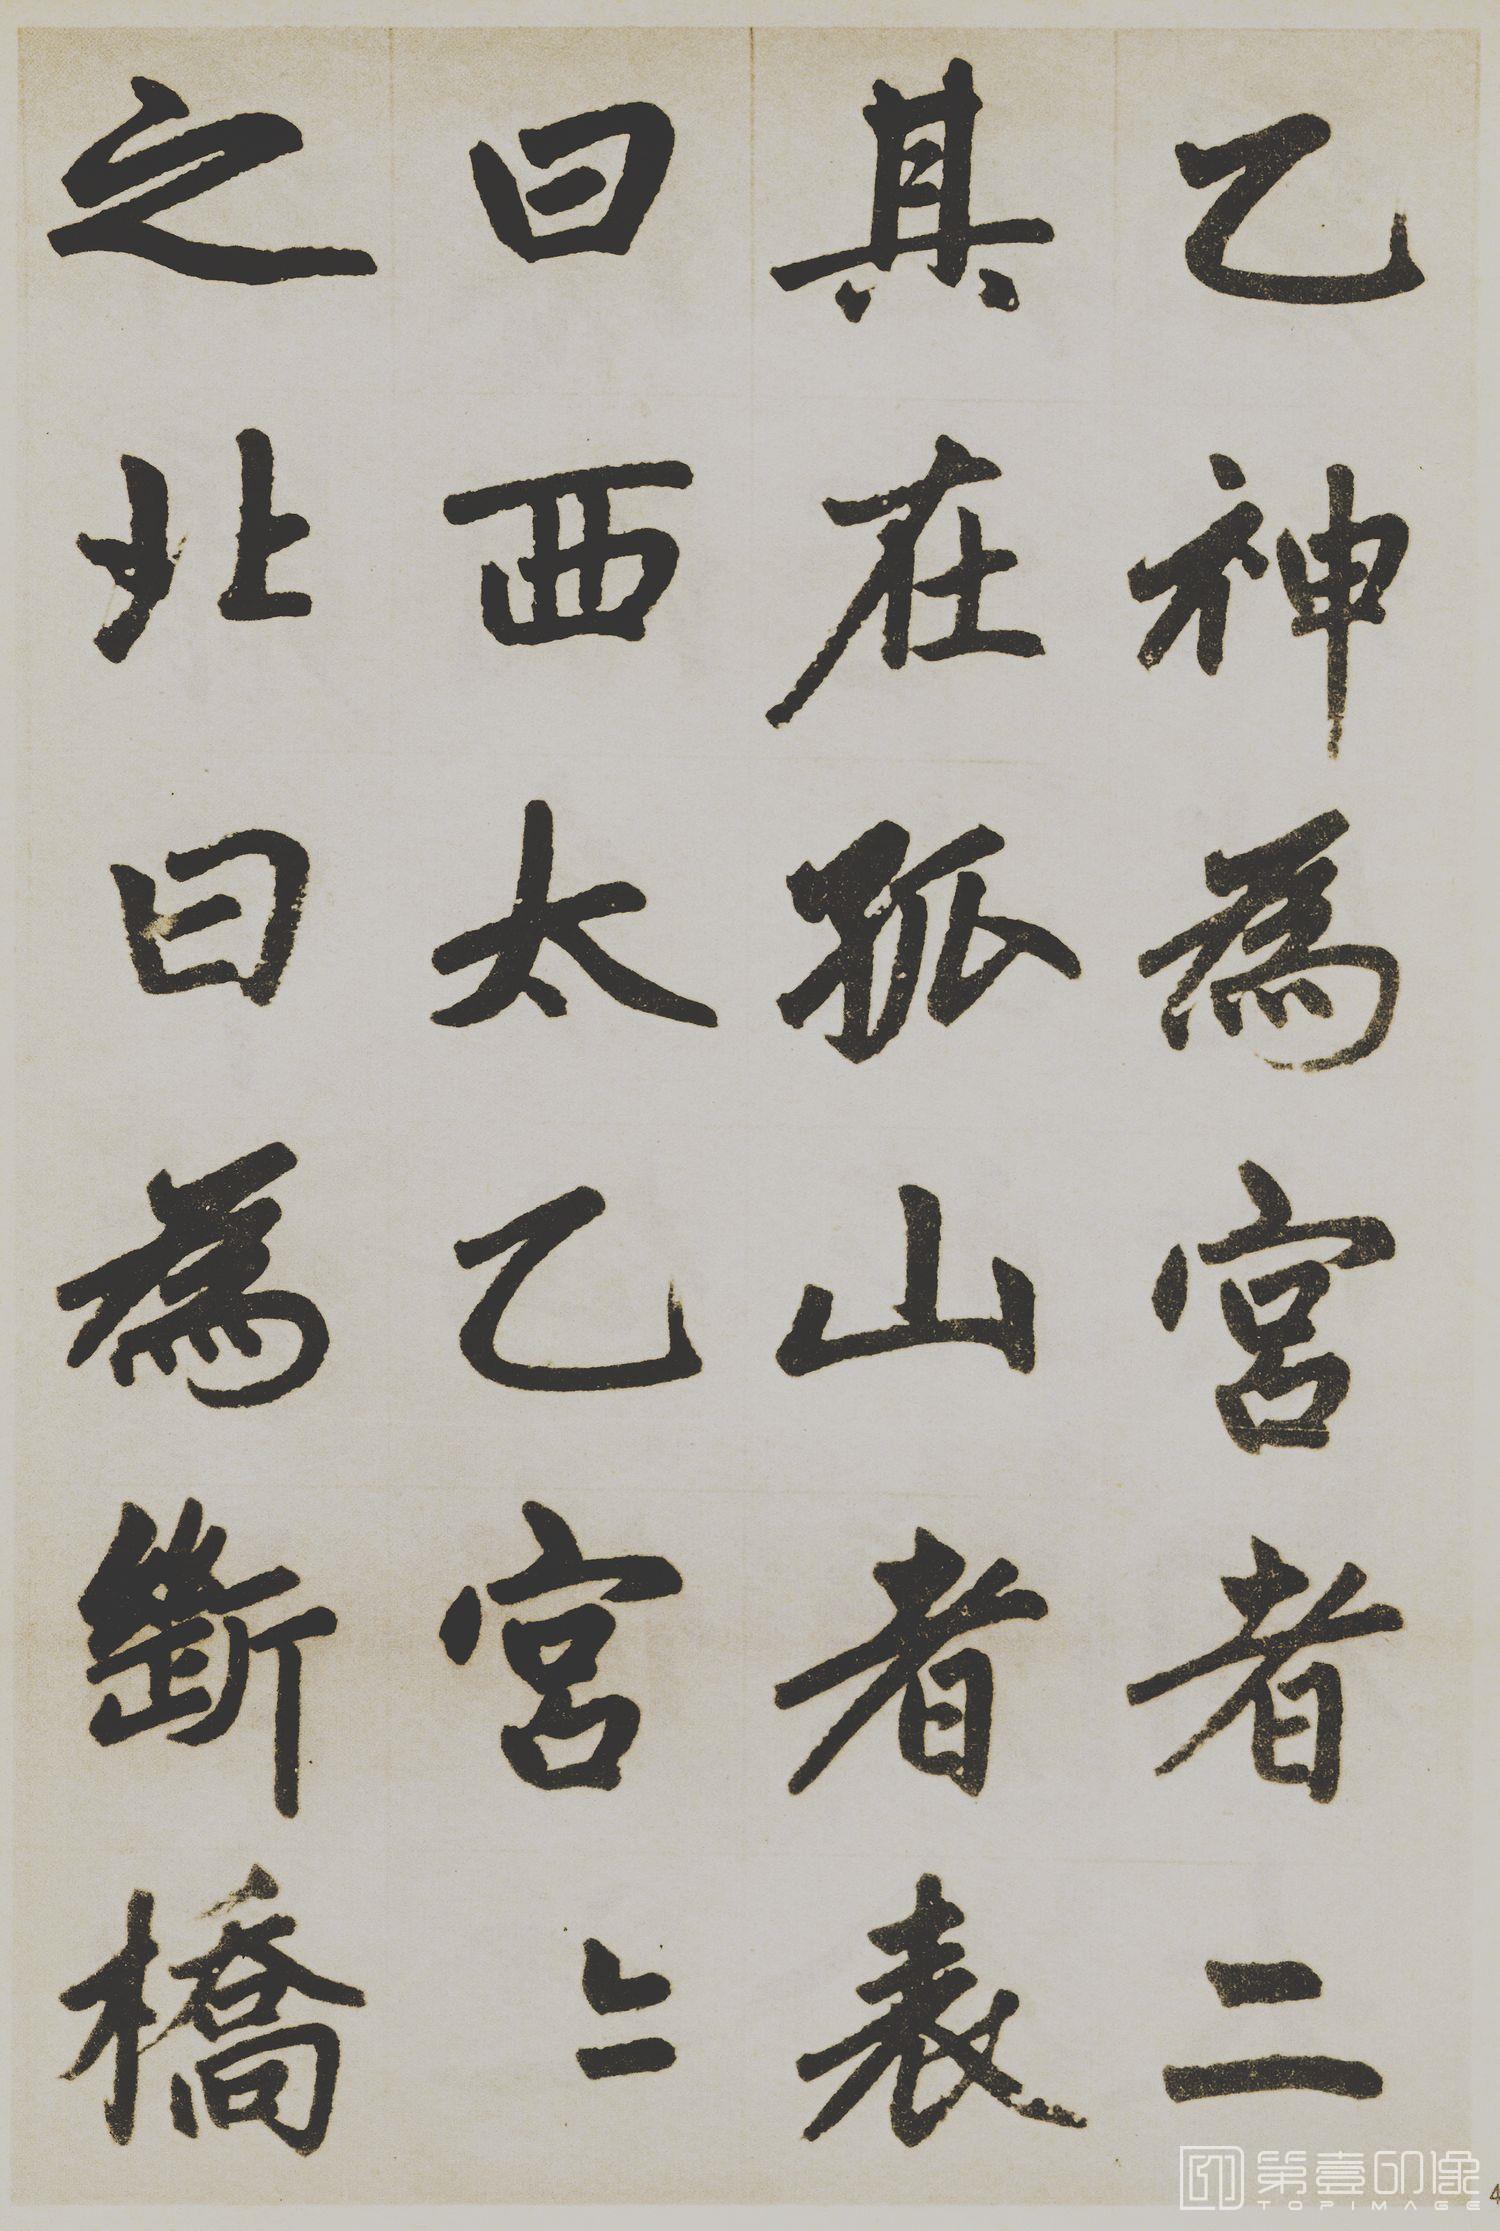 乙神為宮者二
其在孤山者表
曰西太乙宮〻
之北曰為斷橋
第壹印像
TOPIMAGE
4